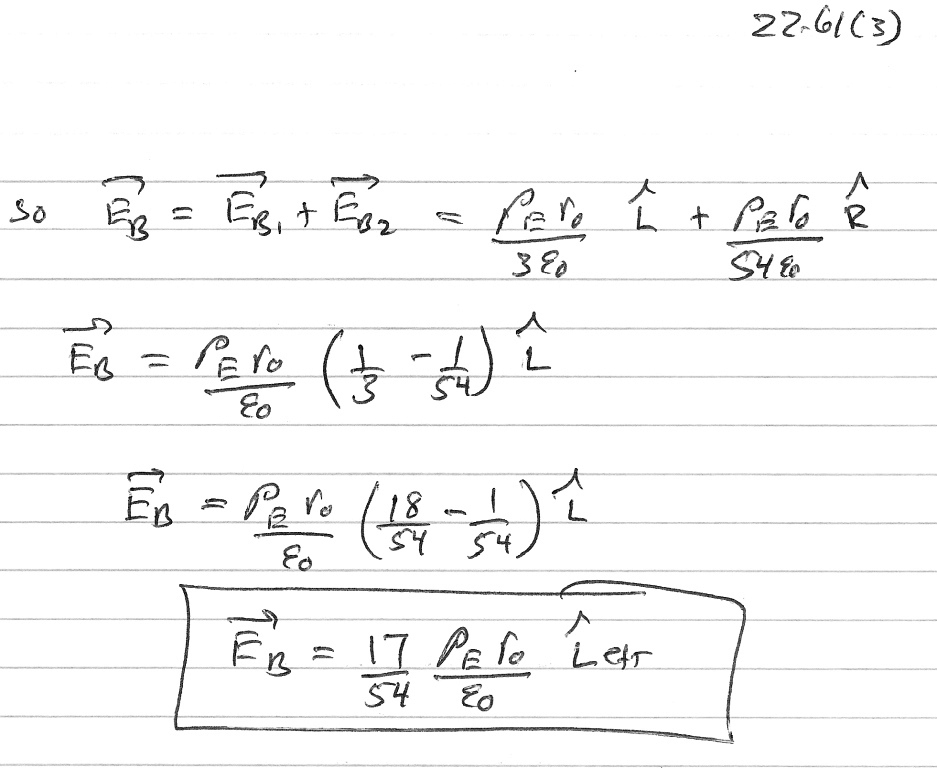 22.61(3)
So E⃗_B = E⃗_B1 + E⃗_B2 = ρ_E r₀ / 3ε₀ L̂ + ρ_E r₀ / 54ε₀ R̂
E⃗_B = ρ_E r₀ / ε₀ (1/3 - 1/54) L̂
E⃗_B = ρ_E r₀ / ε₀ (18/54 - 1/54) L̂
E⃗_B = 17/54 ρ_E r₀ / ε₀ L̂eft